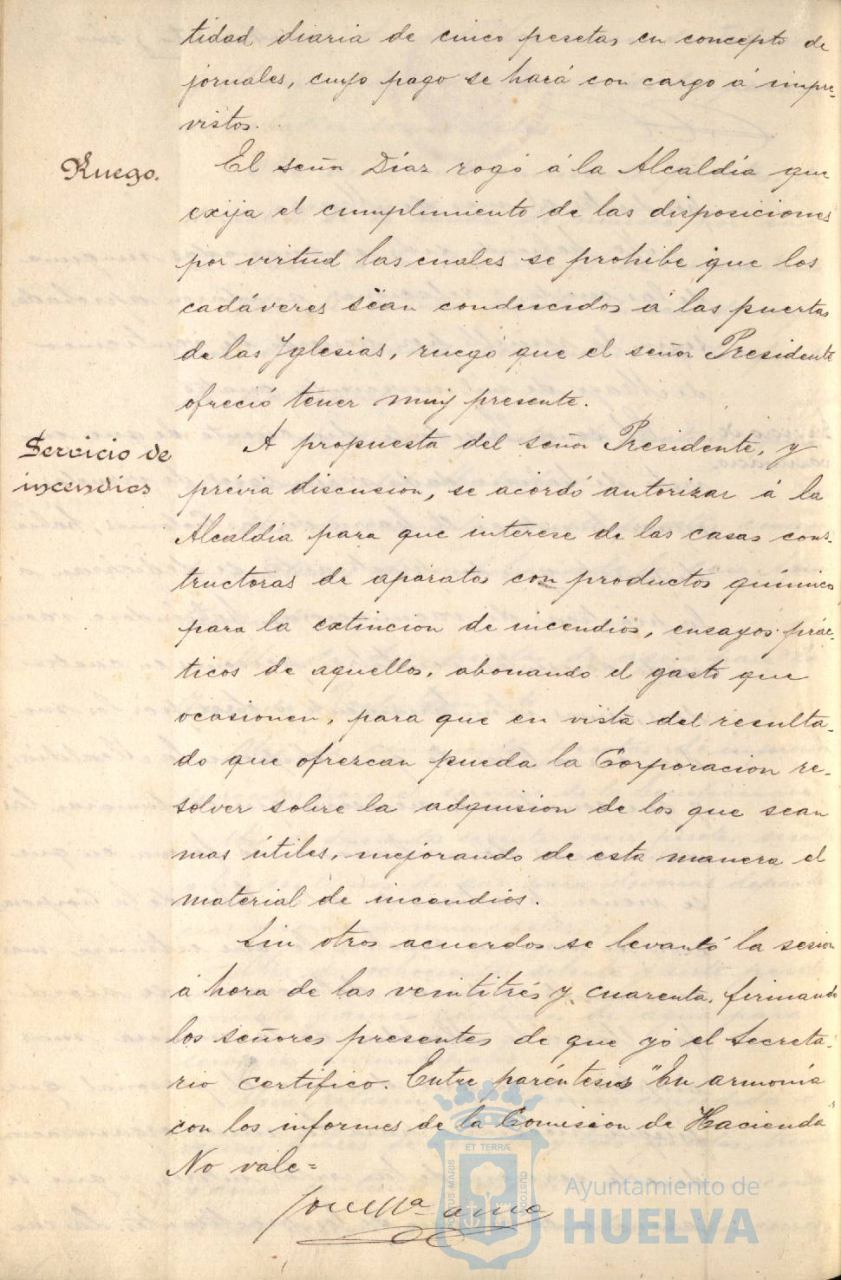 tidad diaria de cinco pesetas en concepto de
jornales, cuyo pago se hará con cargo á impre-
vistos.
Ruego.
El señor Díaz rogó á la Alcaldía que
exija el cumplimiento de las disposiciones
por virtud las cuales se prohibe que los
cadáveres sean conducidos á las puertas
de las Iglesias, ruego que el señor Presidente
ofreció tener muy presente.
Servicio de
incendios
A propuesta del señor Presidente, y
prévia discusion, se acordó autorizar á la
Alcaldia para que interese de las casas cons-
tructoras de aparatos con productos químicos
para la extincion de incendios, ensayos prác-
ticos de aquellos, abonando el gasto que
ocasionen, para que en vista del resulta-
do que ofrezcan pueda la Corporacion re-
solver sobre la adquision de los que sean
mas útiles, mejorando de esta manera el
material de incendios.
Sin otros acuerdos se levantó la sesion
á hora de las veintitrés y cuarenta, firmando
los señores presentes de que yó el Secreta-
rio certifico. Entre paréntesis "En armonía
con los informes de la Comision de Hacienda"
No vale=
ET TERRÆ
PORTUS MARIS
CUSTODIA
Ayuntamiento de
HUELVA